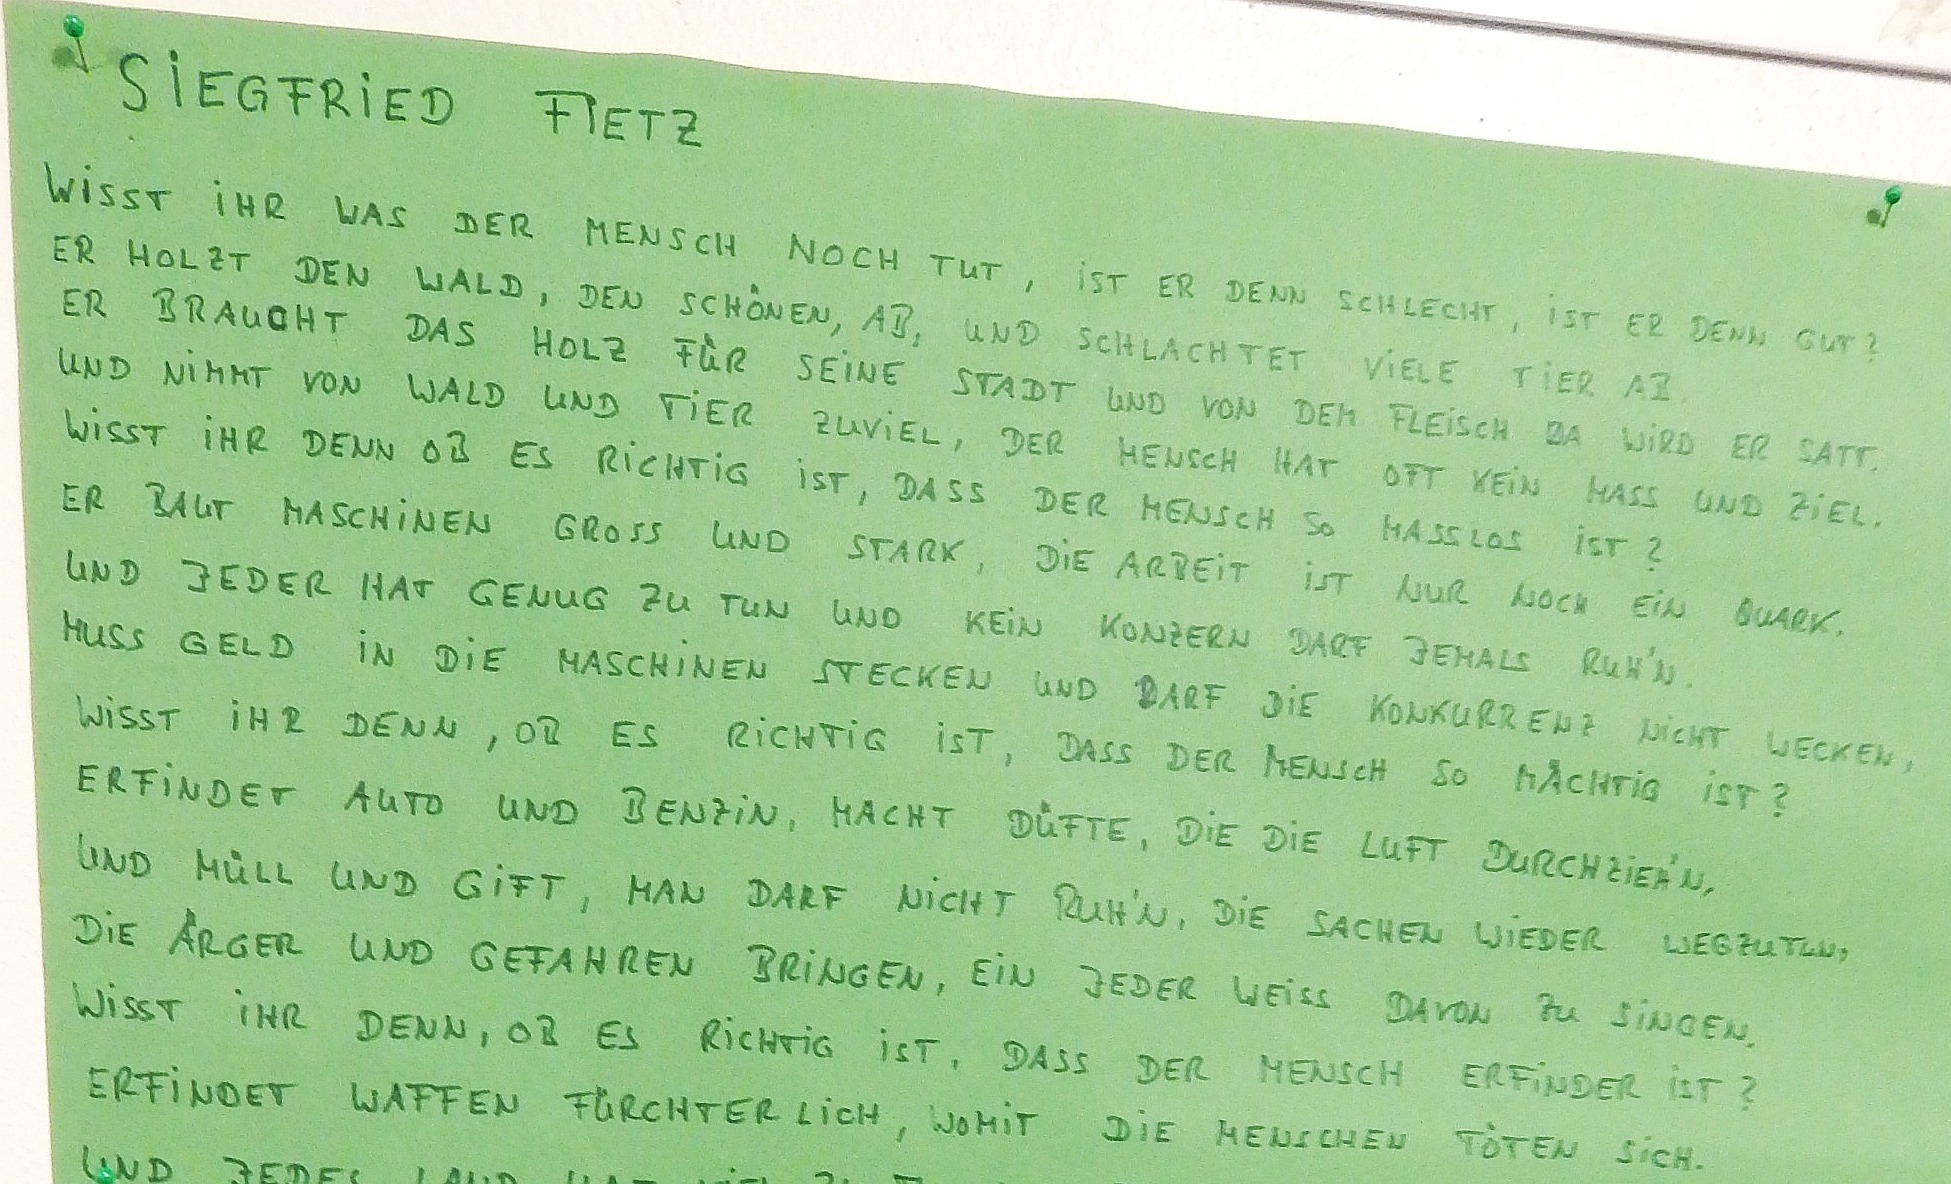 SIEGFRIED FIETZ
WISST IHR WAS DER MENSCH NOCH TUT, IST ER DENN SCHLECHT, IST ER DENN GUT?
ER HOLZT DEN WALD, DEN SCHÖNEN, AB, UND SCHLACHTET VIELE TIER AB.
ER BRAUCHT DAS HOLZ FÜR SEINE STADT UND VON DEM FLEISCH DA WIRD ER SATT.
UND NIMMT VON WALD UND TIER ZUVIEL, DER MENSCH HAT OFT KEIN MASS UND ZIEL.
WISST IHR DENN OB ES RICHTIG IST, DASS DER MENSCH SO MASSLOS IST?
ER BAUT MASCHINEN GROSS UND STARK, DIE ARBEIT IST NUR NOCH EIN QUARK.
UND JEDER HAT GENUG ZU TUN UND KEIN KONZERN DARF JEMALS RUH'N.
MUSS GELD IN DIE MASCHINEN STECKEN UND DARF DIE KONKURRENZ NICHT WECKEN,
WISST IHR DENN, OB ES RICHTIG IST, DASS DER MENSCH SO MÄCHTIG IST?
ERFINDET AUTO UND BENZIN, MACHT DÜFTE, DIE DIE LUFT DURCHZIEH'N,
UND MÜLL UND GIFT, MAN DARF NICHT RUH'N, DIE SACHEN WIEDER WEGZUTUN,
DIE ÄRGER UND GEFAHREN BRINGEN, EIN JEDER WEISS DAVON ZU SINGEN.
WISST IHR DENN, OB ES RICHTIG IST, DASS DER MENSCH ERFINDER IST?
ERFINDET WAFFEN FÜRCHTERLICH, WOMIT DIE MENSCHEN TÖTEN SICH.
UND JEDES LAND HAT VIEL ZU